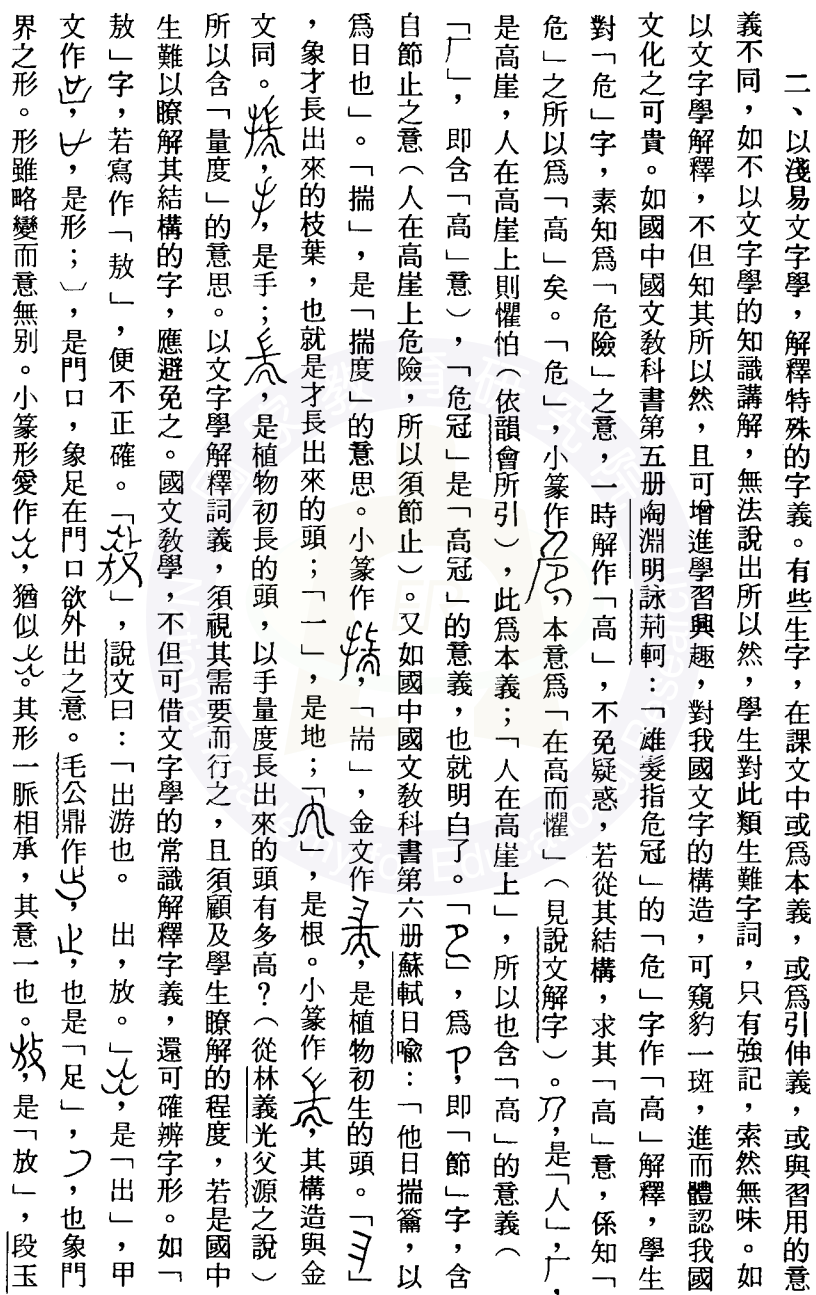 二、以淺易文字學，解釋特殊的字義。有些生字，在課文中或爲本義，或爲引伸義，或與習用的意
義不同，如不以文字學的知識講解，無法說出所以然，學生對此類生難字詞，只有強記，索然無味。如
以文字學解釋，不但知其所以然，且可增進學習興趣，對我國文字的構造，可窺豹一斑，進而體認我國
文化之可貴。如國中國文教科書第五册陶淵明詠荊軻：「雄髮指危冠」的「危」字作「高」解釋，學生
對「危」字，素知爲「危險」之意，一時解作「高」，不免疑惑，若從其結構，求其「高」意，係知「
危」之所以爲「高」矣。「危」，小篆作，本意爲「在高而懼」（見說文解字）。，是「人」，厂，
是高崖，人在高崖上則懼怕（依韻會所引），此爲本義；「人在高崖上」，所以也含「高」的意義（
「厂」，即含「高」意），「危冠」是「高冠」的意義，也就明白了。「」，爲卩，即「節」字，含
自節止之意（人在高崖上危險，所以須節止）。又如國中國文教科書第六册蘇軾日喩：「他日揣籥，以
爲日也」。「揣」，是「揣度」的意思。小篆作，「耑」，金文作，是植物初生的頭。「」
，象才長出來的枝葉，也就是才長出來的頭；「一」，是地；「」，是根。小篆作，其構造與金
文同。，，是手；，是植物初長的頭，以手量度長出來的頭有多高？（從林義光文源之說）
所以含「量度」的意思。以文字學解釋詞義，須視其需要而行之，且須顧及學生瞭解的程度，若是國中
生難以瞭解其結構的字，應避免之。國文教學，不但可借文字學的常識解釋字義，還可確辨字形。如「
敖」字，若寫作「敖」，便不正確。「」，說文曰：「出游也。　出，放。」，是「出」，甲
文作，，是形；，是門口，象足在門口欲外出之意。毛公鼎作，止，也是「足」，，也象門
界之形。形雖略變而意無別。小篆形愛作，猶似。其形一脈相承，其意一也。，是「放」，段玉